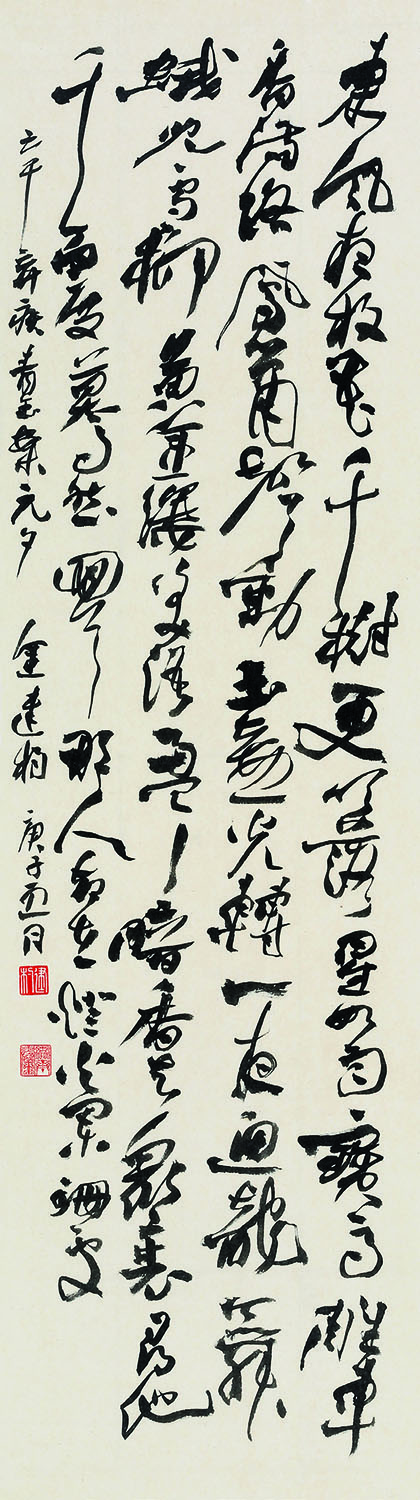 東風夜放花千樹更吹落星如雨寶馬雕車
香滿路鳳簫聲動玉壺光轉一夜魚龍舞
蛾兒雪柳黃金縷笑語盈盈暗香去衆裏尋他
千百度驀然回首那人卻在燈火闌珊處
辛棄疾青玉案元夕 金建 庚子五月